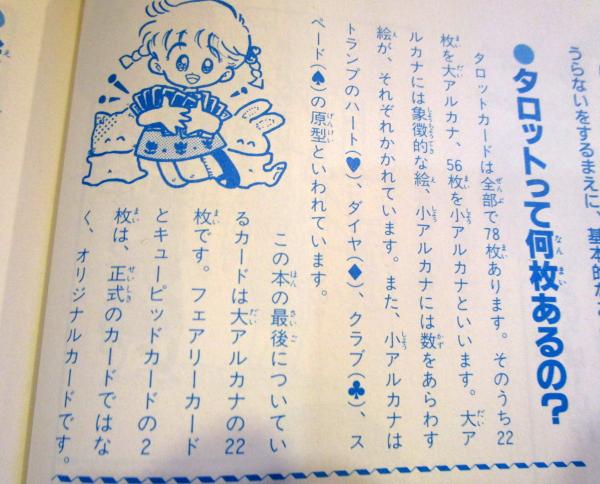 うらないをするまえに、基本的な
●タロットって何枚あるの?
タロットカードは全部で78枚あります。そのうち22
枚を大アルカナ、56枚を小アルカナといいます。大ア
ルカナには象徴的な絵、小アルカナには数をあらわす
絵が、それぞれかかれています。また、小アルカナは
トランプのハート(♥)、ダイヤ(♦)、クラブ(♣)、ス
ペード(♠)の原型といわれています。
この本の最後についてい
るカードは大アルカナの22
枚です。フェアリーカード
とキューピッドカードの2
枚は、正式のカードではな
く、オリジナルカードです。